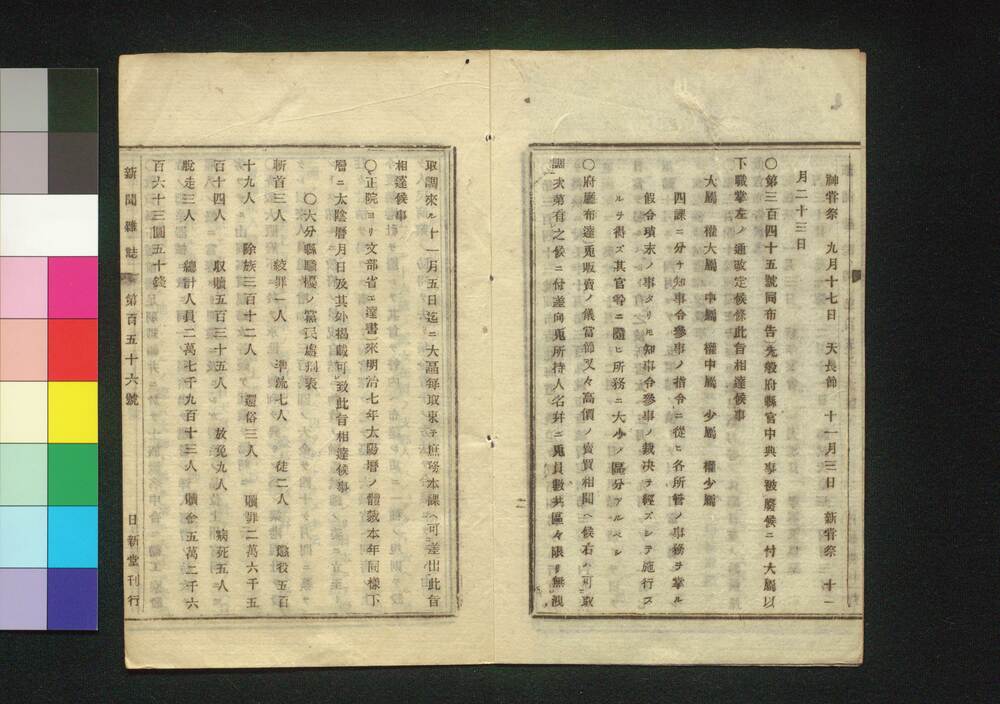 神嘗祭 九月十七日 天長節 十一月三日 新嘗祭 十一
月二十三日
〇第三百四十五號同布告先般府縣官中典事被廢候ニ付大屬以
下職掌左ノ通改定候條此旨相達候事
大屬 權大屬 中屬 權中屬 少屬 權少屬
四課ニ分チ知事令參事ノ指令ニ從ヒ各所管ノ事務ヲ掌ル
假令瑣末ノ事タリヒ知事令參事ノ裁决ヲ經ズシテ施行ス
ルヲ得ズ其官等ニ隨ヒ所務ニ大少ノ區分アルベシ
〇府廳布達兎販賣ノ儀當節叉々高價ノ賣買相聞ヘ候右ハ可取
調次第有之候ニ付差向兎所持人名幷ニ兎員數共區々限リ無洩
取調來ル十一月五日迄ニ大區每取束子庶務本課ヘ可差出此旨
相達候事
〇正院ヨリ文部省エ達書來明治七年太陽暦ノ體裁本年同樣下
層ニ太陰暦月日及其外揭載可致此旨相達候事
〇大分縣騷擾ノ黨民處刑表
斬首三人 絞罪一人 準流七人 徒二人 懲役五百
十九人 除族三百十二人 還俗三人 贖罪二萬六千五
百十四人 収贖五百三十五人 放免九人 病死五人
脫走三人 總計人員二萬七千九百十三人 贖金五萬二千六
百六十三圓五十錢
新聞雜誌 第百五十六號 日新堂刊行